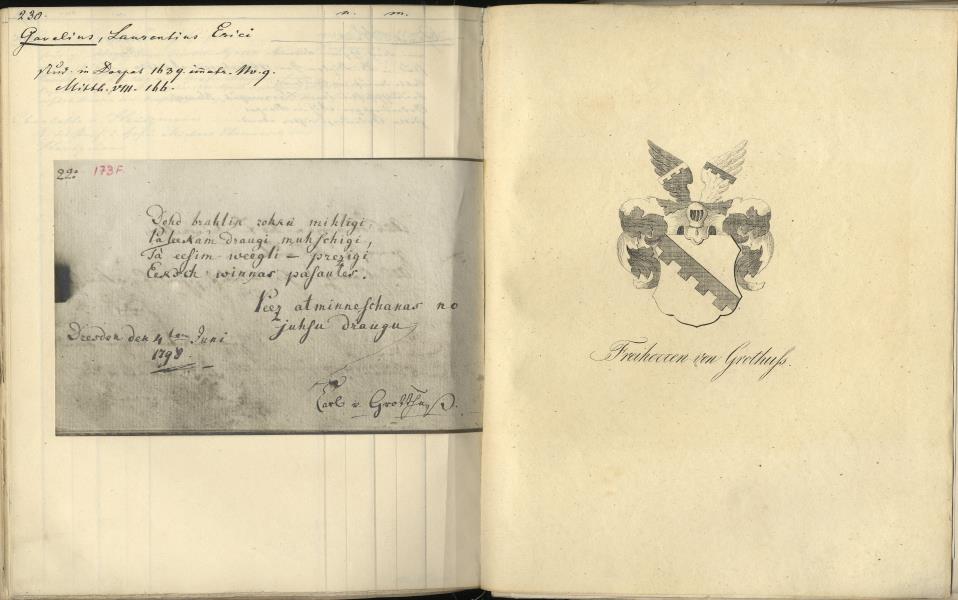 230.
n. m.
Gavelius, Laurentius Erici
stud. in Dorpat 1639. imatr. No. 9.
Mitth. VIII. 166.
22. 173F.
Dohd brahlix rohku mihligi,
Pateekam draugi muhschigi,
Tà eesim weegli – prezigi
Eeksch winņas pasaules.
Peez atminneschanas no
juhsu draugu
Dresden den 4ten Juni
1798
Carl v. Grotthuß.
Freiherren von Grothuſs.